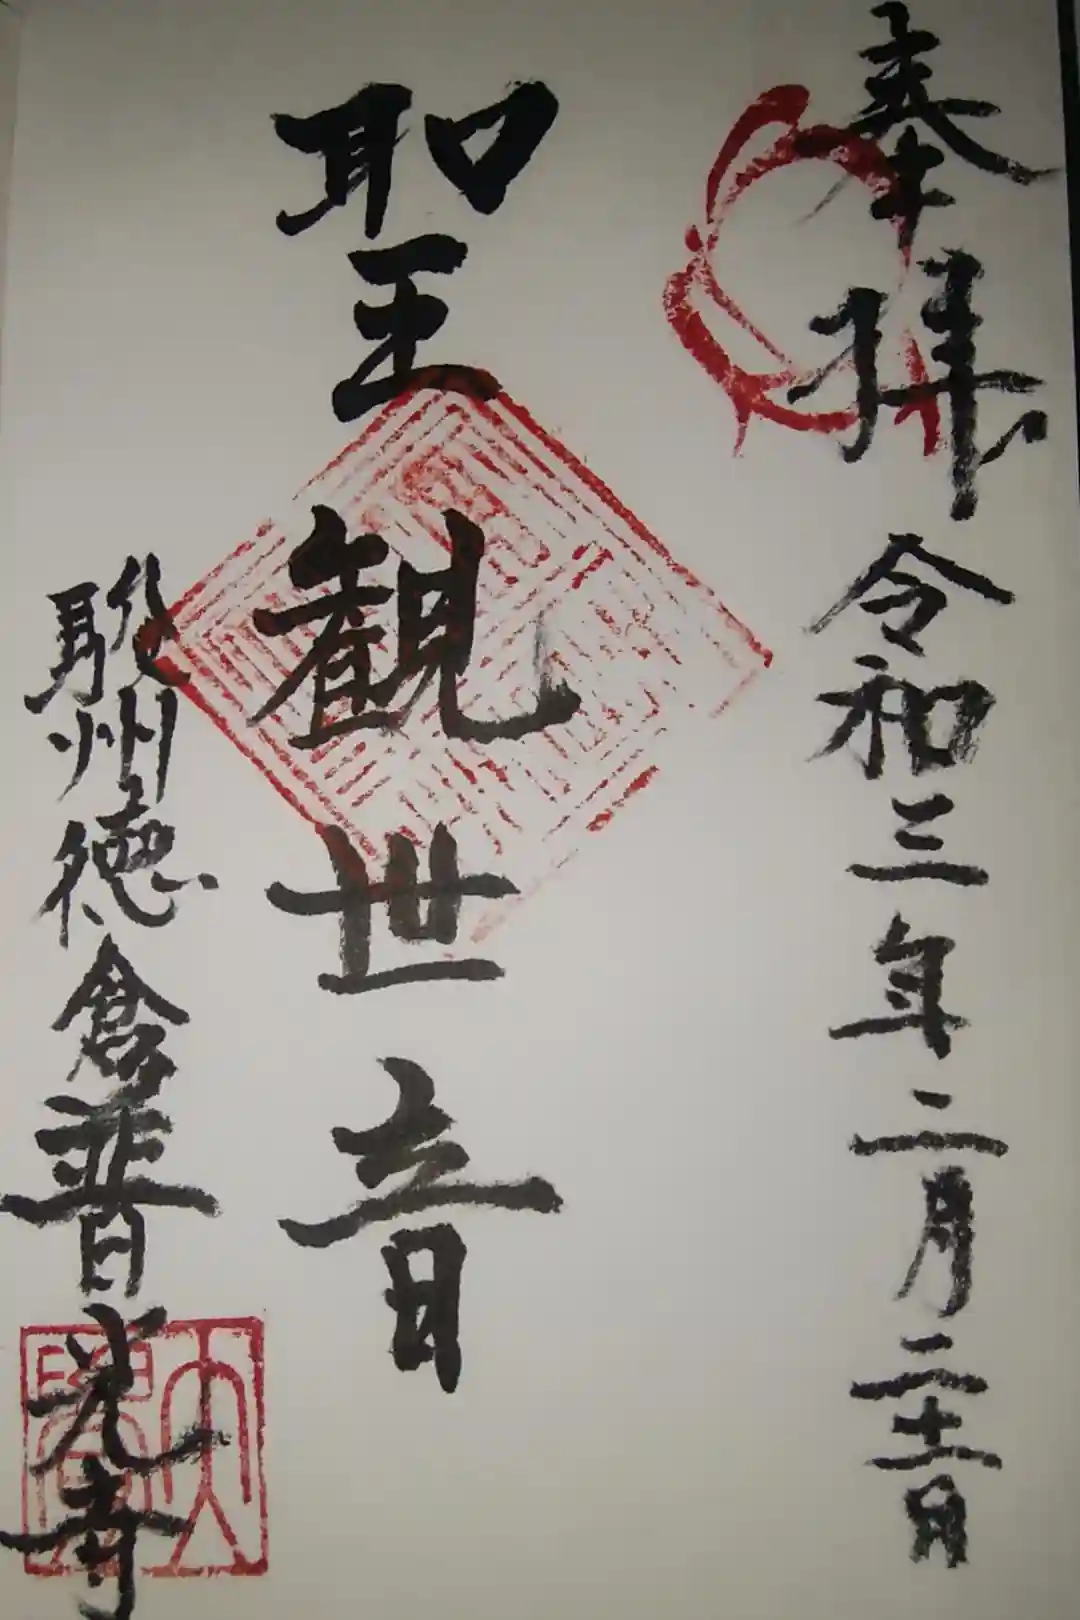 奉拝 令和三年二月二十二日
聖観世音
駿州徳倉普光寺